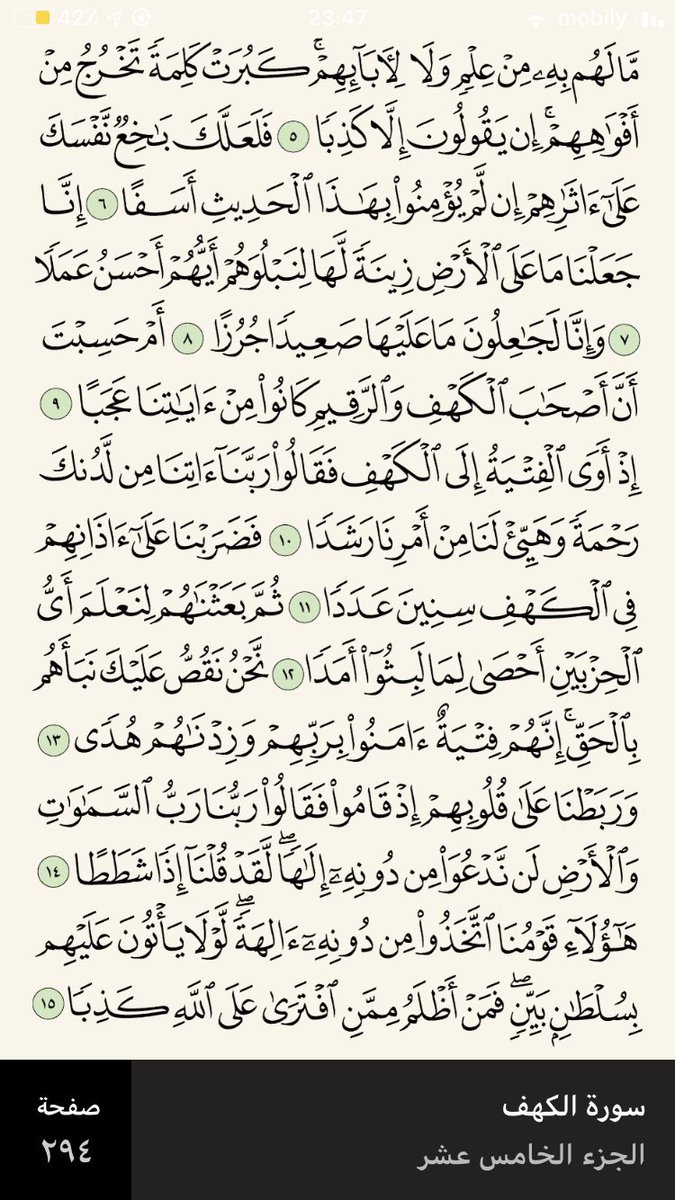 42% 23:47 mobily
مَّا لَهُم بِهِۦ مِنۡ عِلۡمٖ وَلَا لِأٓبَآئِهِمۡۚ كَبُرَتۡ كَلِمَةٗ تَخۡرُجُ مِنۡ
أَفۡوَٰهِهِمۡۚ إِن يَقُولُونَ إِلَّا كَذِبٗا ٥ فَلَعَلَّكَ بَٰخِعٞ نَّفۡسَكَ
عَلَىٰٓ ءَاثَٰرِهِمۡ إِن لَّمۡ يُؤۡمِنُواْ بِهَٰذَا ٱلۡحَدِيثِ أَسَفًا ٦ إِنَّا
جَعَلۡنَا مَا عَلَى ٱلۡأَرۡضِ زِينَةٗ لَّهَا لِنَبۡلُوَهُمۡ أَيُّهُمۡ أَحۡسَنُ عَمَلٗا
٧ وَإِنَّا لَجَٰعِلُونَ مَا عَلَيۡهَا صَعِيدٗا جُرُزًا ٨ أَمۡ حَسِبۡتَ
أَنَّ أَصۡحَٰبَ ٱلۡكَهۡفِ وَٱلرَّقِيمِ كَانُواْ مِنۡ ءَايَٰتِنَا عَجَبًا ٩
إِذۡ أَوَى ٱلۡفِتۡيَةُ إِلَى ٱلۡكَهۡفِ فَقَالُواْ رَبَّنَآ ءَاتِنَا مِن لَّدُنكَ
رَحۡمَةٗ وَهَيِّئۡ لَنَا مِنۡ أَمۡرِنَا رَشَدٗا ١٠ فَضَرَبۡنَا عَلَىٰٓ ءَاذَانِهِمۡ
فِي ٱلۡكَهۡفِ سِنِينَ عَدَدٗا ١١ ثُمَّ بَعَثۡنَٰهُمۡ لِنَعۡلَمَ أَيُّ
ٱلۡحِزۡبَيۡنِ أَحۡصَىٰ لِمَا لَبِثُوٓاْ أَمَدٗا ١٢ نَّحۡنُ نَقُصُّ عَلَيۡكَ نَبَأَهُم
بِٱلۡحَقِّۚ إِنَّهُمۡ فِتۡيَةٌ ءَامَنُواْ بِرَبِّهِمۡ وَزِدۡنَٰهُمۡ هُدٗى ١٣
وَرَبَطۡنَا عَلَىٰ قُلُوبِهِمۡ إِذۡ قَامُواْ فَقَالُواْ رَبُّنَا رَبُّ ٱلسَّمَٰوَٰتِ
وَٱلۡأَرۡضِ لَن نَّدۡعُوَاْ مِن دُونِهِۦٓ إِلَٰهٗاۖ لَّقَدۡ قُلۡنَآ إِذٗا شَطَطًا ١٤
هَٰٓؤُلَآءِ قَوۡمُنَا ٱتَّخَذُواْ مِن دُونِهِۦٓ ءَالِهَةٗۖ لَّوۡلَا يَأۡتُونَ عَلَيۡهِم
بِسُلۡطَٰنِۭ بَيِّنٖۖ فَمَنۡ أَظۡلَمُ مِمَّنِ ٱفۡتَرَىٰ عَلَى ٱللَّهِ كَذِبٗا ١٥
سورة الكهف
الجزء الخامس عشر
صفحة
٢٩٤